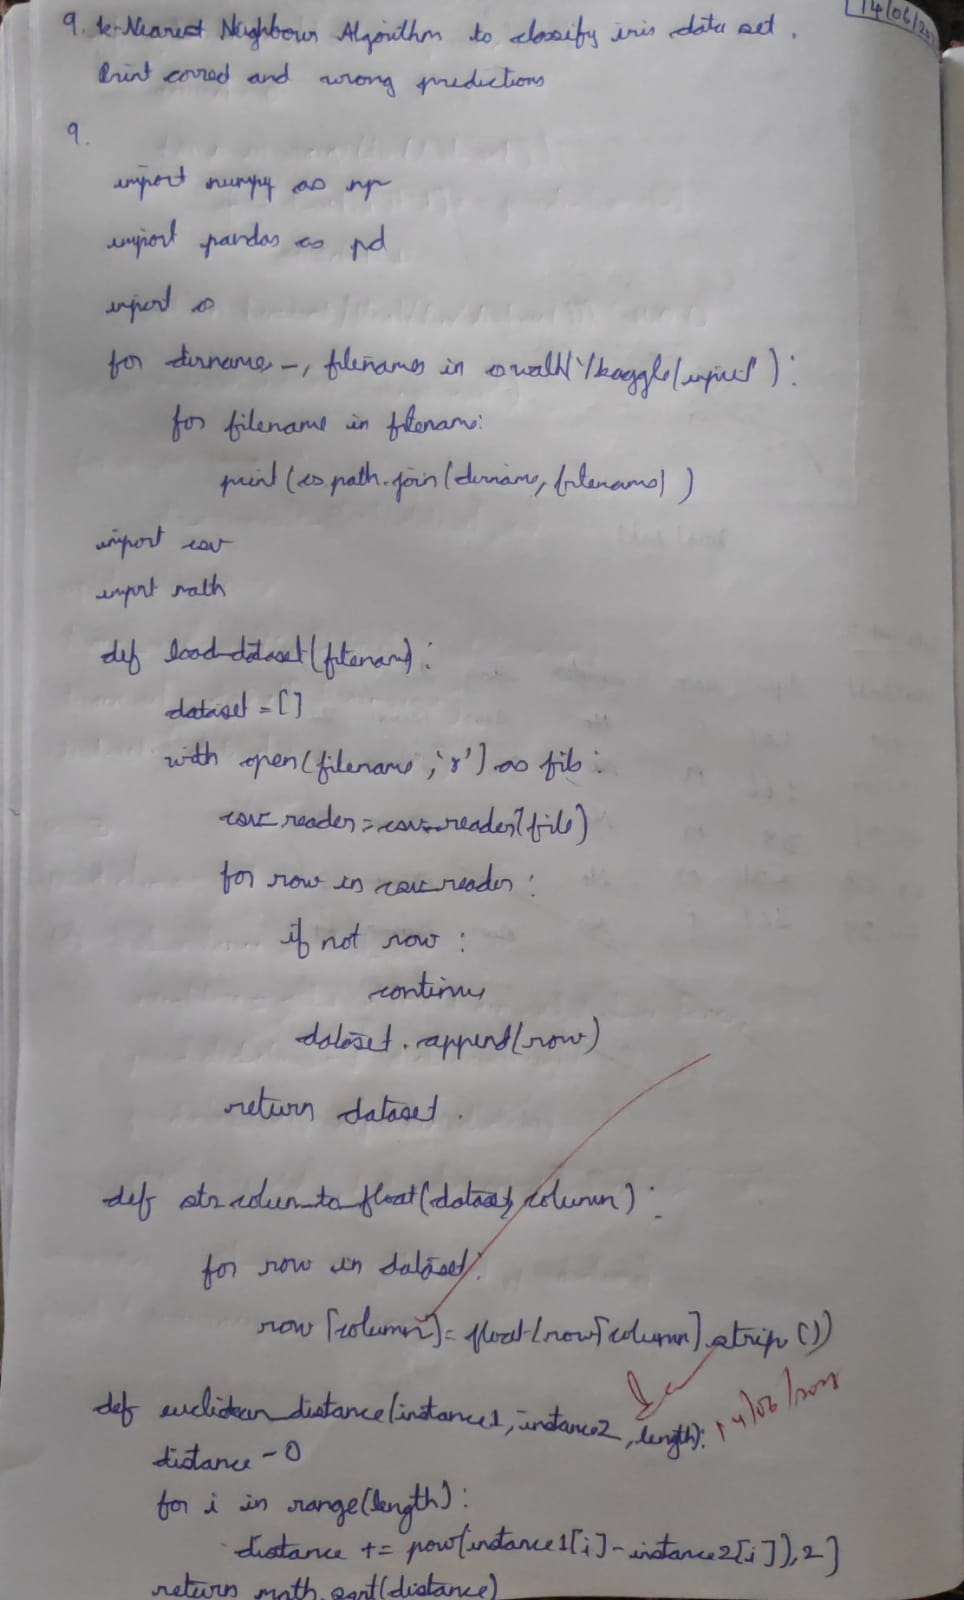 14/06/23
9. k-Nearest Neighbour Algorithm to classify iris data set.
Print correct and wrong predictions
9.
import numpy as np
import pandas as pd
import os
for dirname, _, filenames in os.walk('/kaggle/input'):
for filename in filenames:
print(os.path.join(dirname, filename))
import csv
import math
def load_dataset(filename):
dataset = []
with open(filename, 'r') as file:
csv_reader = csv.reader(file)
for row in csv_reader:
if not row:
continue
dataset.append(row)
return dataset.
def str_column_to_float(dataset, column):
for row in dataset:
row[column] = float(row[column].strip())
def euclidean_distance(instance1, instance2, length):
14/06/2023
distance = 0
for i in range(length):
distance += pow(instance1[i] - instance2[i]), 2)
return math.sqrt(distance)